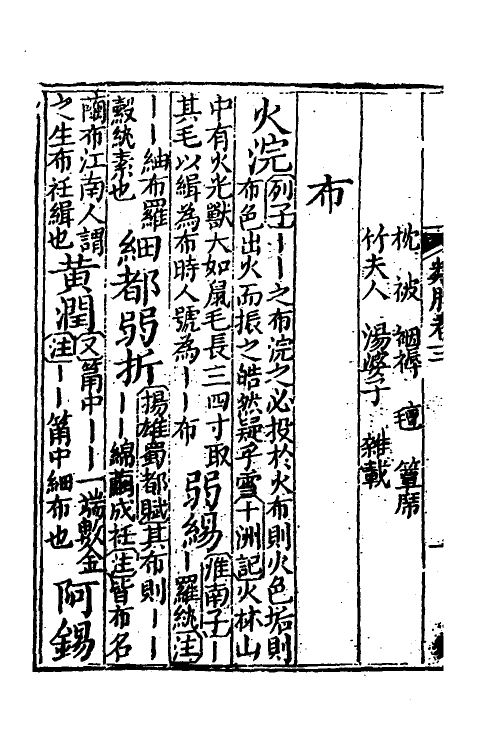 類腋卷三
枕 被 裀褥 氊 簟席
竹夫人 湯婆子 雜載
布
火浣 列子——之布浣之必投於火布則火色垢則
布色出火而振之皓然疑乎雪十洲記火林山
中有火光獸大如鼠毛長三四寸取
其毛以緝為布時人號為——布
弱緆 淮南子—
—羅紈注
——紬布羅
縠紈素也
細都弱折 揚雄蜀都賦其布則——
——綿繭成衽注皆布名
繭布江南人謂
之生布衽緝也
黃潤 又筩中——一端數金
注——筩中細布也
阿錫